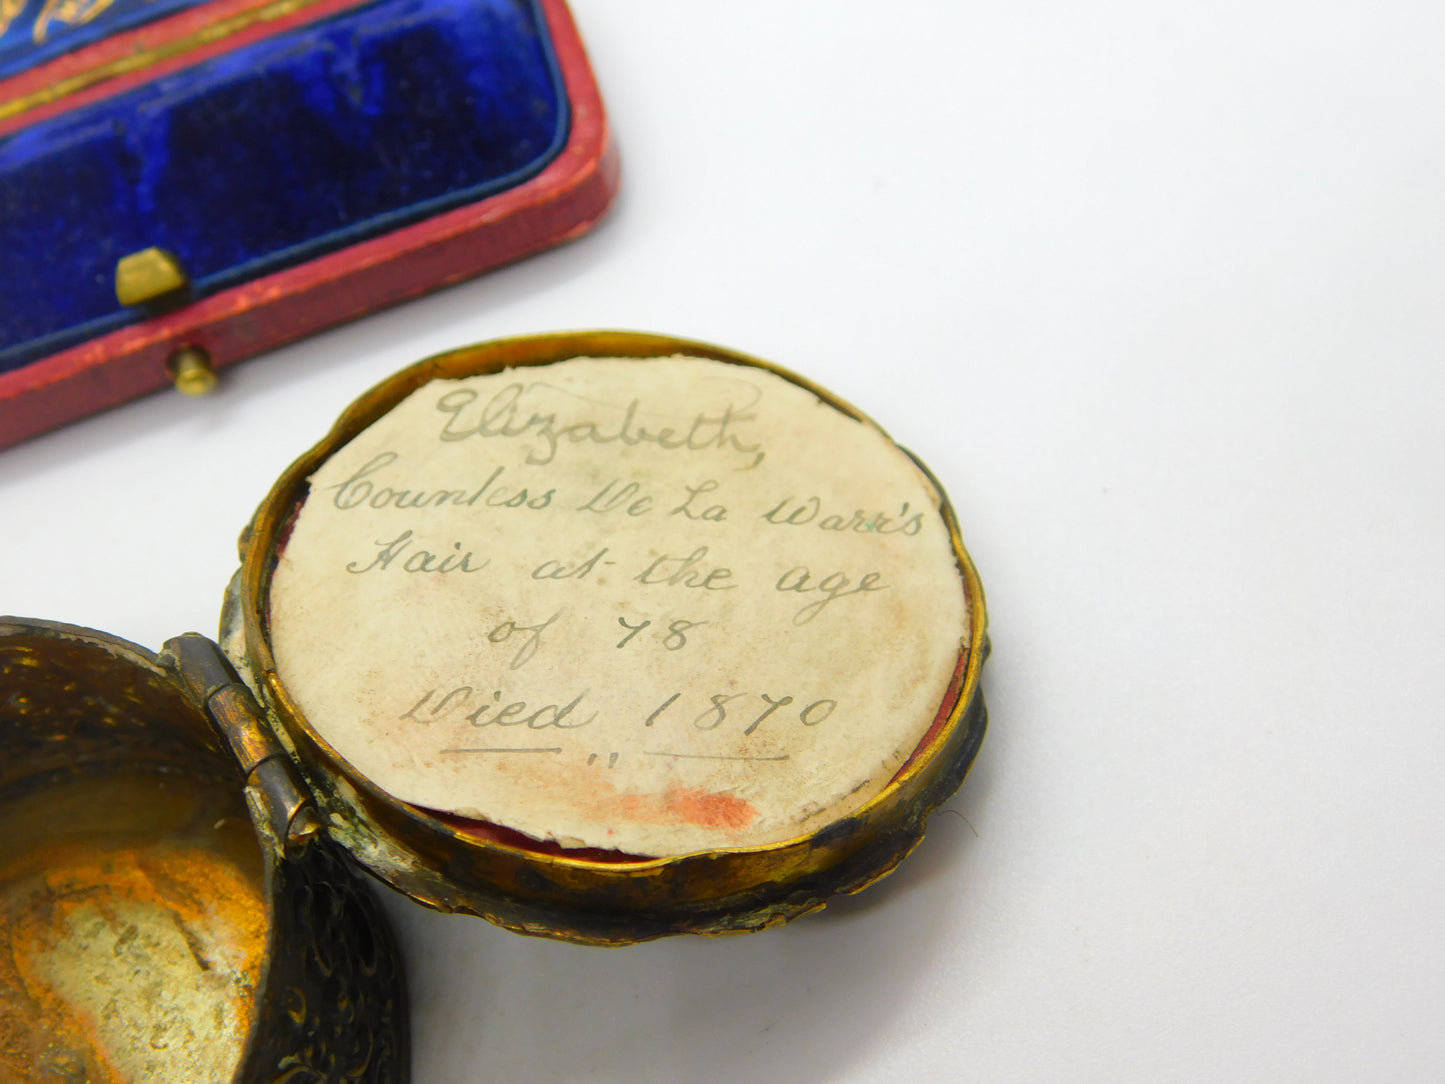 Elizabeth,
Countess De La Warr's
Hair at the age
of 78
Died 1870